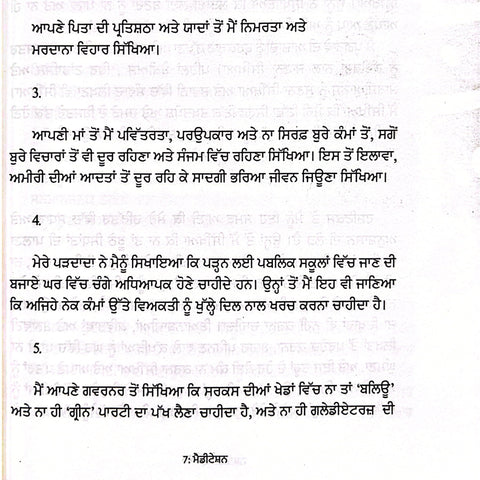 ਆਪਣੇ ਪਿਤਾ ਦੀ ਪ੍ਰਤਿਸ਼ਠਾ ਅਤੇ ਯਾਦਾਂ ਤੋਂ ਮੈਂ ਨਿਮਰਤਾ ਅਤੇ
ਮਰਦਾਨਾ ਵਿਹਾਰ ਸਿੱਖਿਆ।
3.
ਆਪਣੀ ਮਾਂ ਤੋਂ ਮੈਂ ਪਵਿੱਤਰਤਾ, ਪਰਉਪਕਾਰ ਅਤੇ ਨਾ ਸਿਰਫ਼ ਬੁਰੇ ਕੰਮਾਂ ਤੋਂ, ਸਗੋਂ
ਬੁਰੇ ਵਿਚਾਰਾਂ ਤੋਂ ਵੀ ਦੂਰ ਰਹਿਣਾ ਅਤੇ ਸੰਜਮ ਵਿੱਚ ਰਹਿਣਾ ਸਿੱਖਿਆ। ਇਸ ਤੋਂ ਇਲਾਵਾ,
ਅਮੀਰੀ ਦੀਆਂ ਆਦਤਾਂ ਤੋਂ ਦੂਰ ਰਹਿ ਕੇ ਸਾਦਗੀ ਭਰਿਆ ਜੀਵਨ ਜਿਊਣਾ ਸਿੱਖਿਆ।
4.
ਮੇਰੇ ਪੜਦਾਦਾ ਨੇ ਮੈਨੂੰ ਸਿਖਾਇਆ ਕਿ ਪੜ੍ਹਨ ਲਈ ਪਬਲਿਕ ਸਕੂਲਾਂ ਵਿੱਚ ਜਾਣ ਦੀ
ਬਜਾਏ ਘਰ ਵਿੱਚ ਚੰਗੇ ਅਧਿਆਪਕ ਹੋਣੇ ਚਾਹੀਦੇ ਹਨ। ਉਨ੍ਹਾਂ ਤੋਂ ਮੈਂ ਇਹ ਵੀ ਜਾਣਿਆ
ਕਿ ਅਜਿਹੇ ਨੇਕ ਕੰਮਾਂ ਉੱਤੇ ਵਿਅਕਤੀ ਨੂੰ ਖੁੱਲ੍ਹੇ ਦਿਲ ਨਾਲ ਖਰਚ ਕਰਨਾ ਚਾਹੀਦਾ ਹੈ।
5.
ਮੈਂ ਆਪਣੇ ਗਵਰਨਰ ਤੋਂ ਸਿੱਖਿਆ ਕਿ ਸਰਕਸ ਦੀਆਂ ਖੇਡਾਂ ਵਿੱਚ ਨਾ ਤਾਂ ‘ਬਲਿਊ’
ਅਤੇ ਨਾ ਹੀ ‘ਗ੍ਰੀਨ’ ਪਾਰਟੀ ਦਾ ਪੱਖ ਲੈਣਾ ਚਾਹੀਦਾ ਹੈ, ਅਤੇ ਨਾ ਹੀ ਗਲੇਡੀਏਟਰਜ਼ ਦੀ
7: ਮੈਡੀਟੇਸ਼ਨ